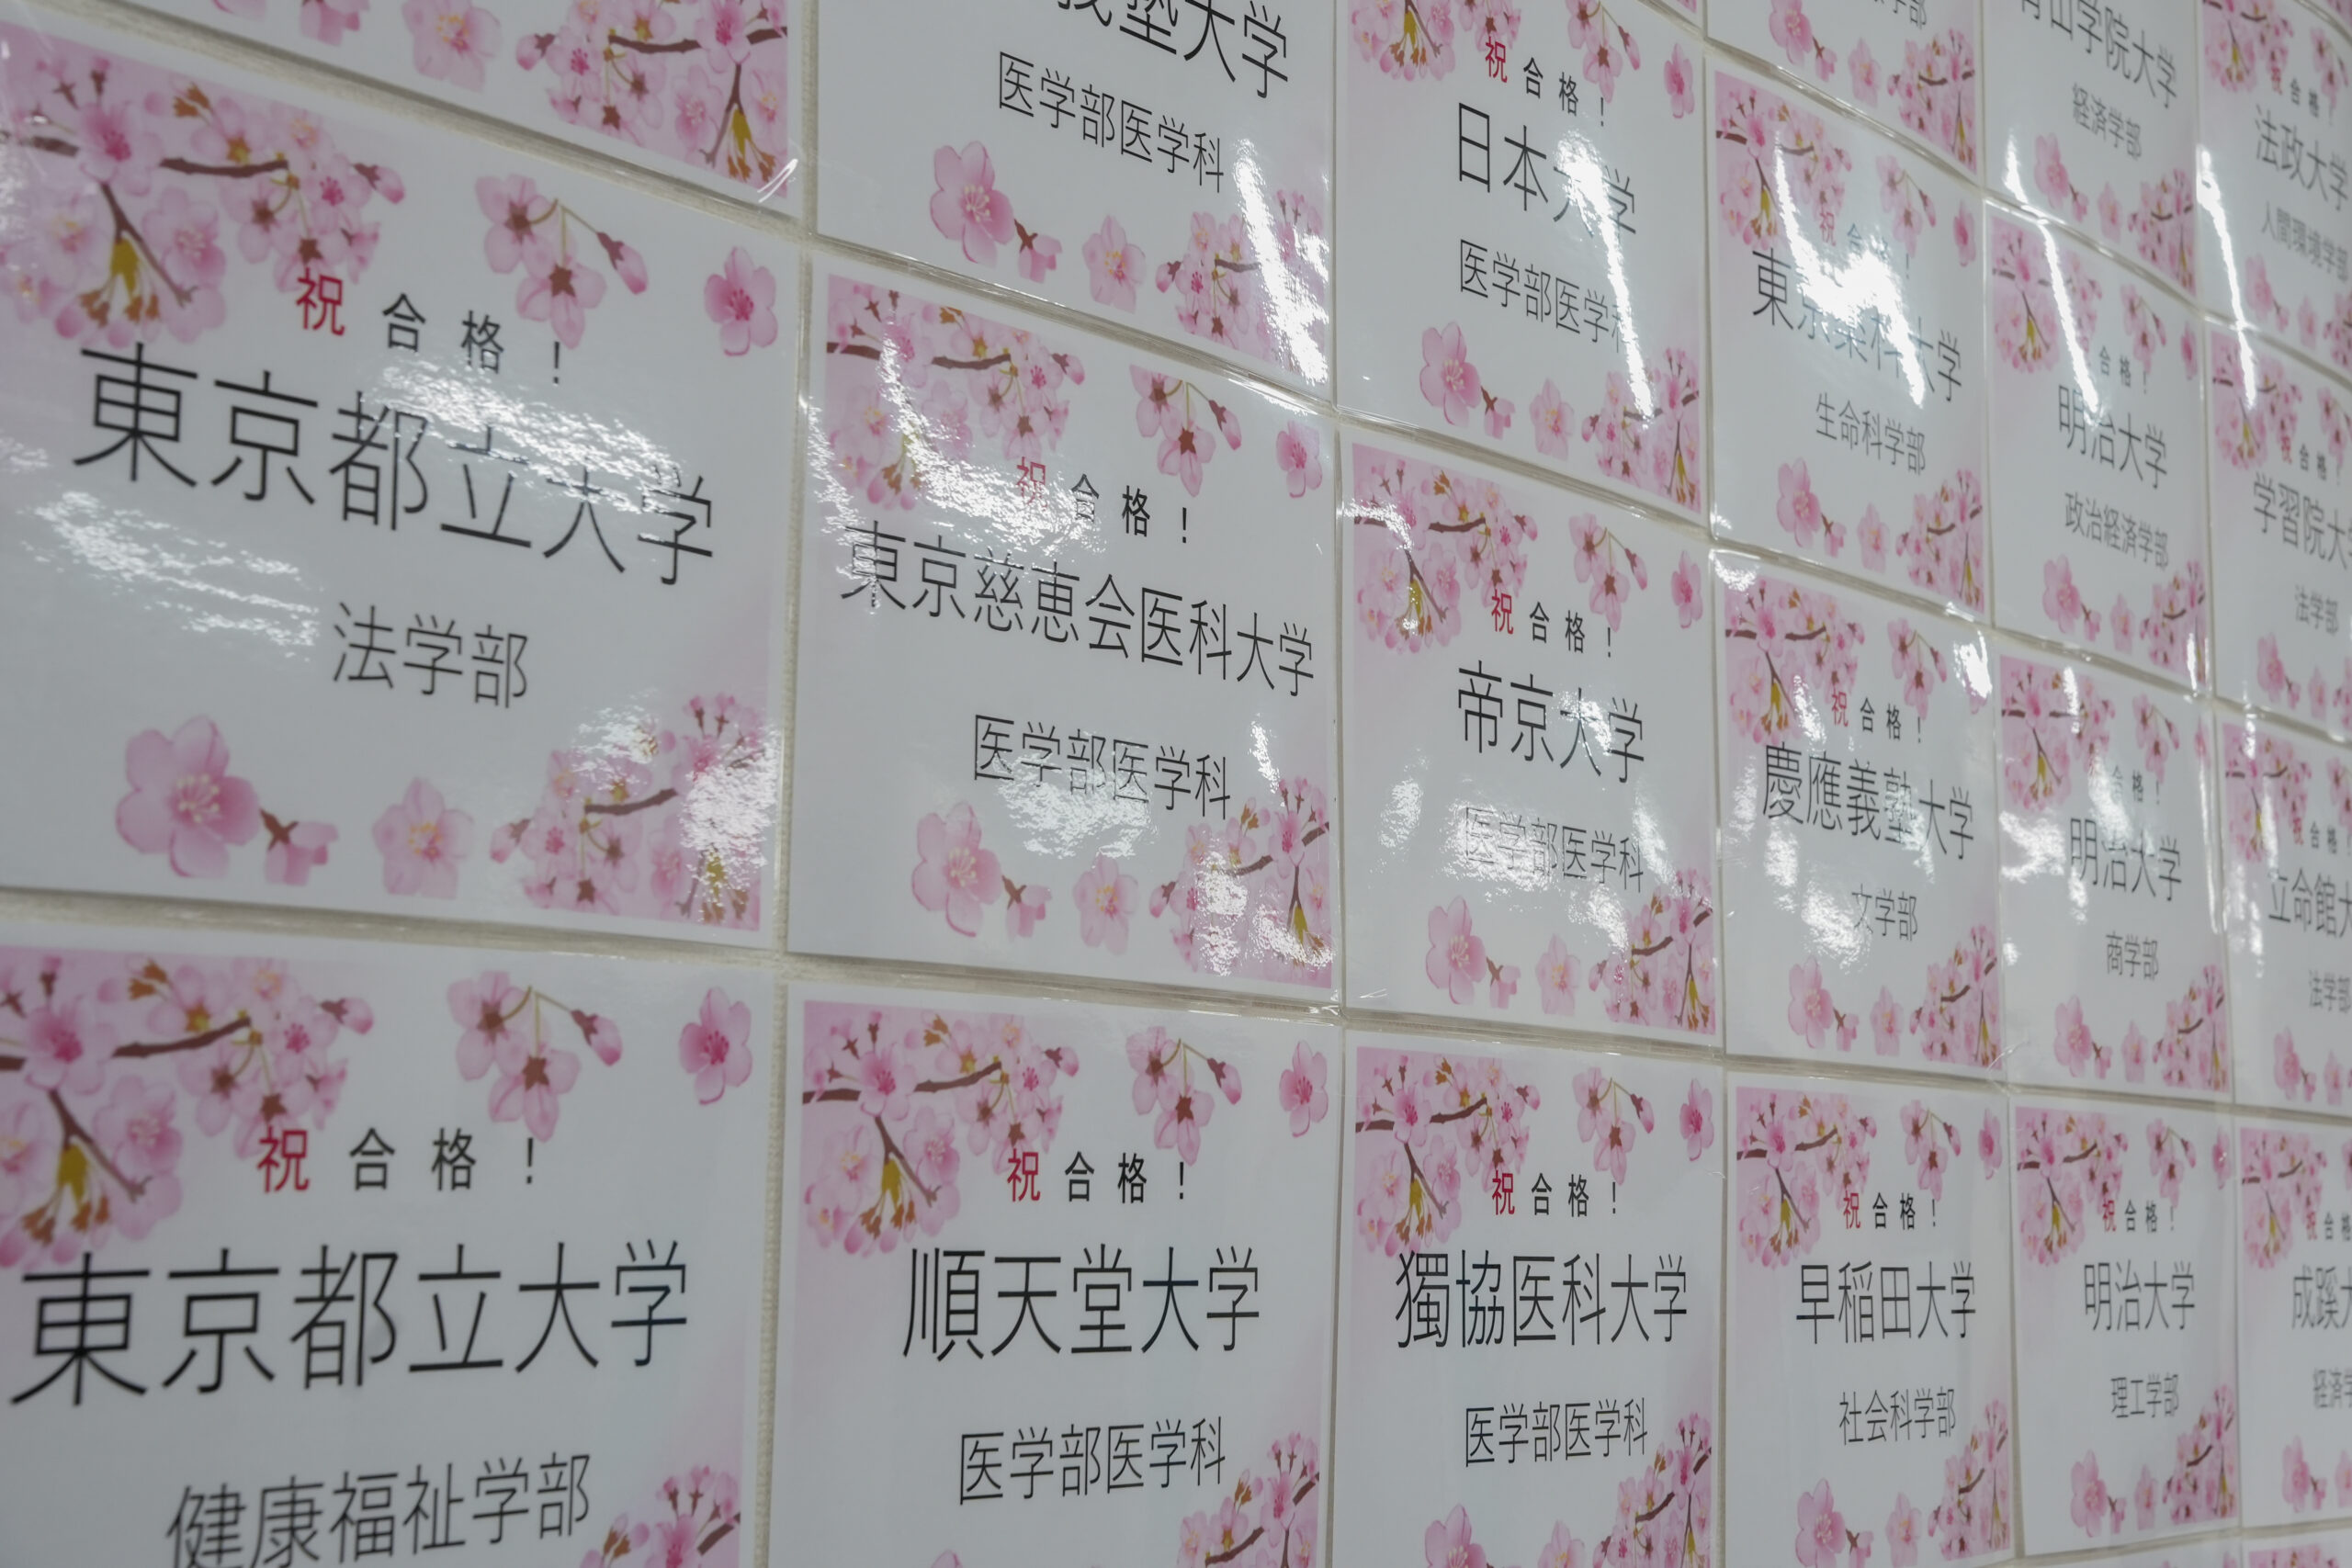 塾大学
医学部医学科
祝合格！
日本大学
医学部医学科
学部
山学院大学
経済学部
合格！
法政大学
人間環境学部
祝合格！
東京都立大学
法学部
祝合格！
東京慈恵会医科大学
医学部医学科
祝合格！
帝京大学
医学部医学科
祝合格！
東京薬科大学
生命科学部
祝合格！
慶應義塾大学
文学部
合格！
明治大学
政治経済学部
合格！
明治大学
商学部
祝合格！
学習院大
法学部
祝合格！
立命館
法学部
祝合格！
東京都立大学
健康福祉学部
祝合格！
順天堂大学
医学部医学科
祝合格！
獨協医科大学
医学部医学科
祝合格！
早稲田大学
社会科学部
祝合格！
明治大学
理工学部
祝合格
成蹊
経済